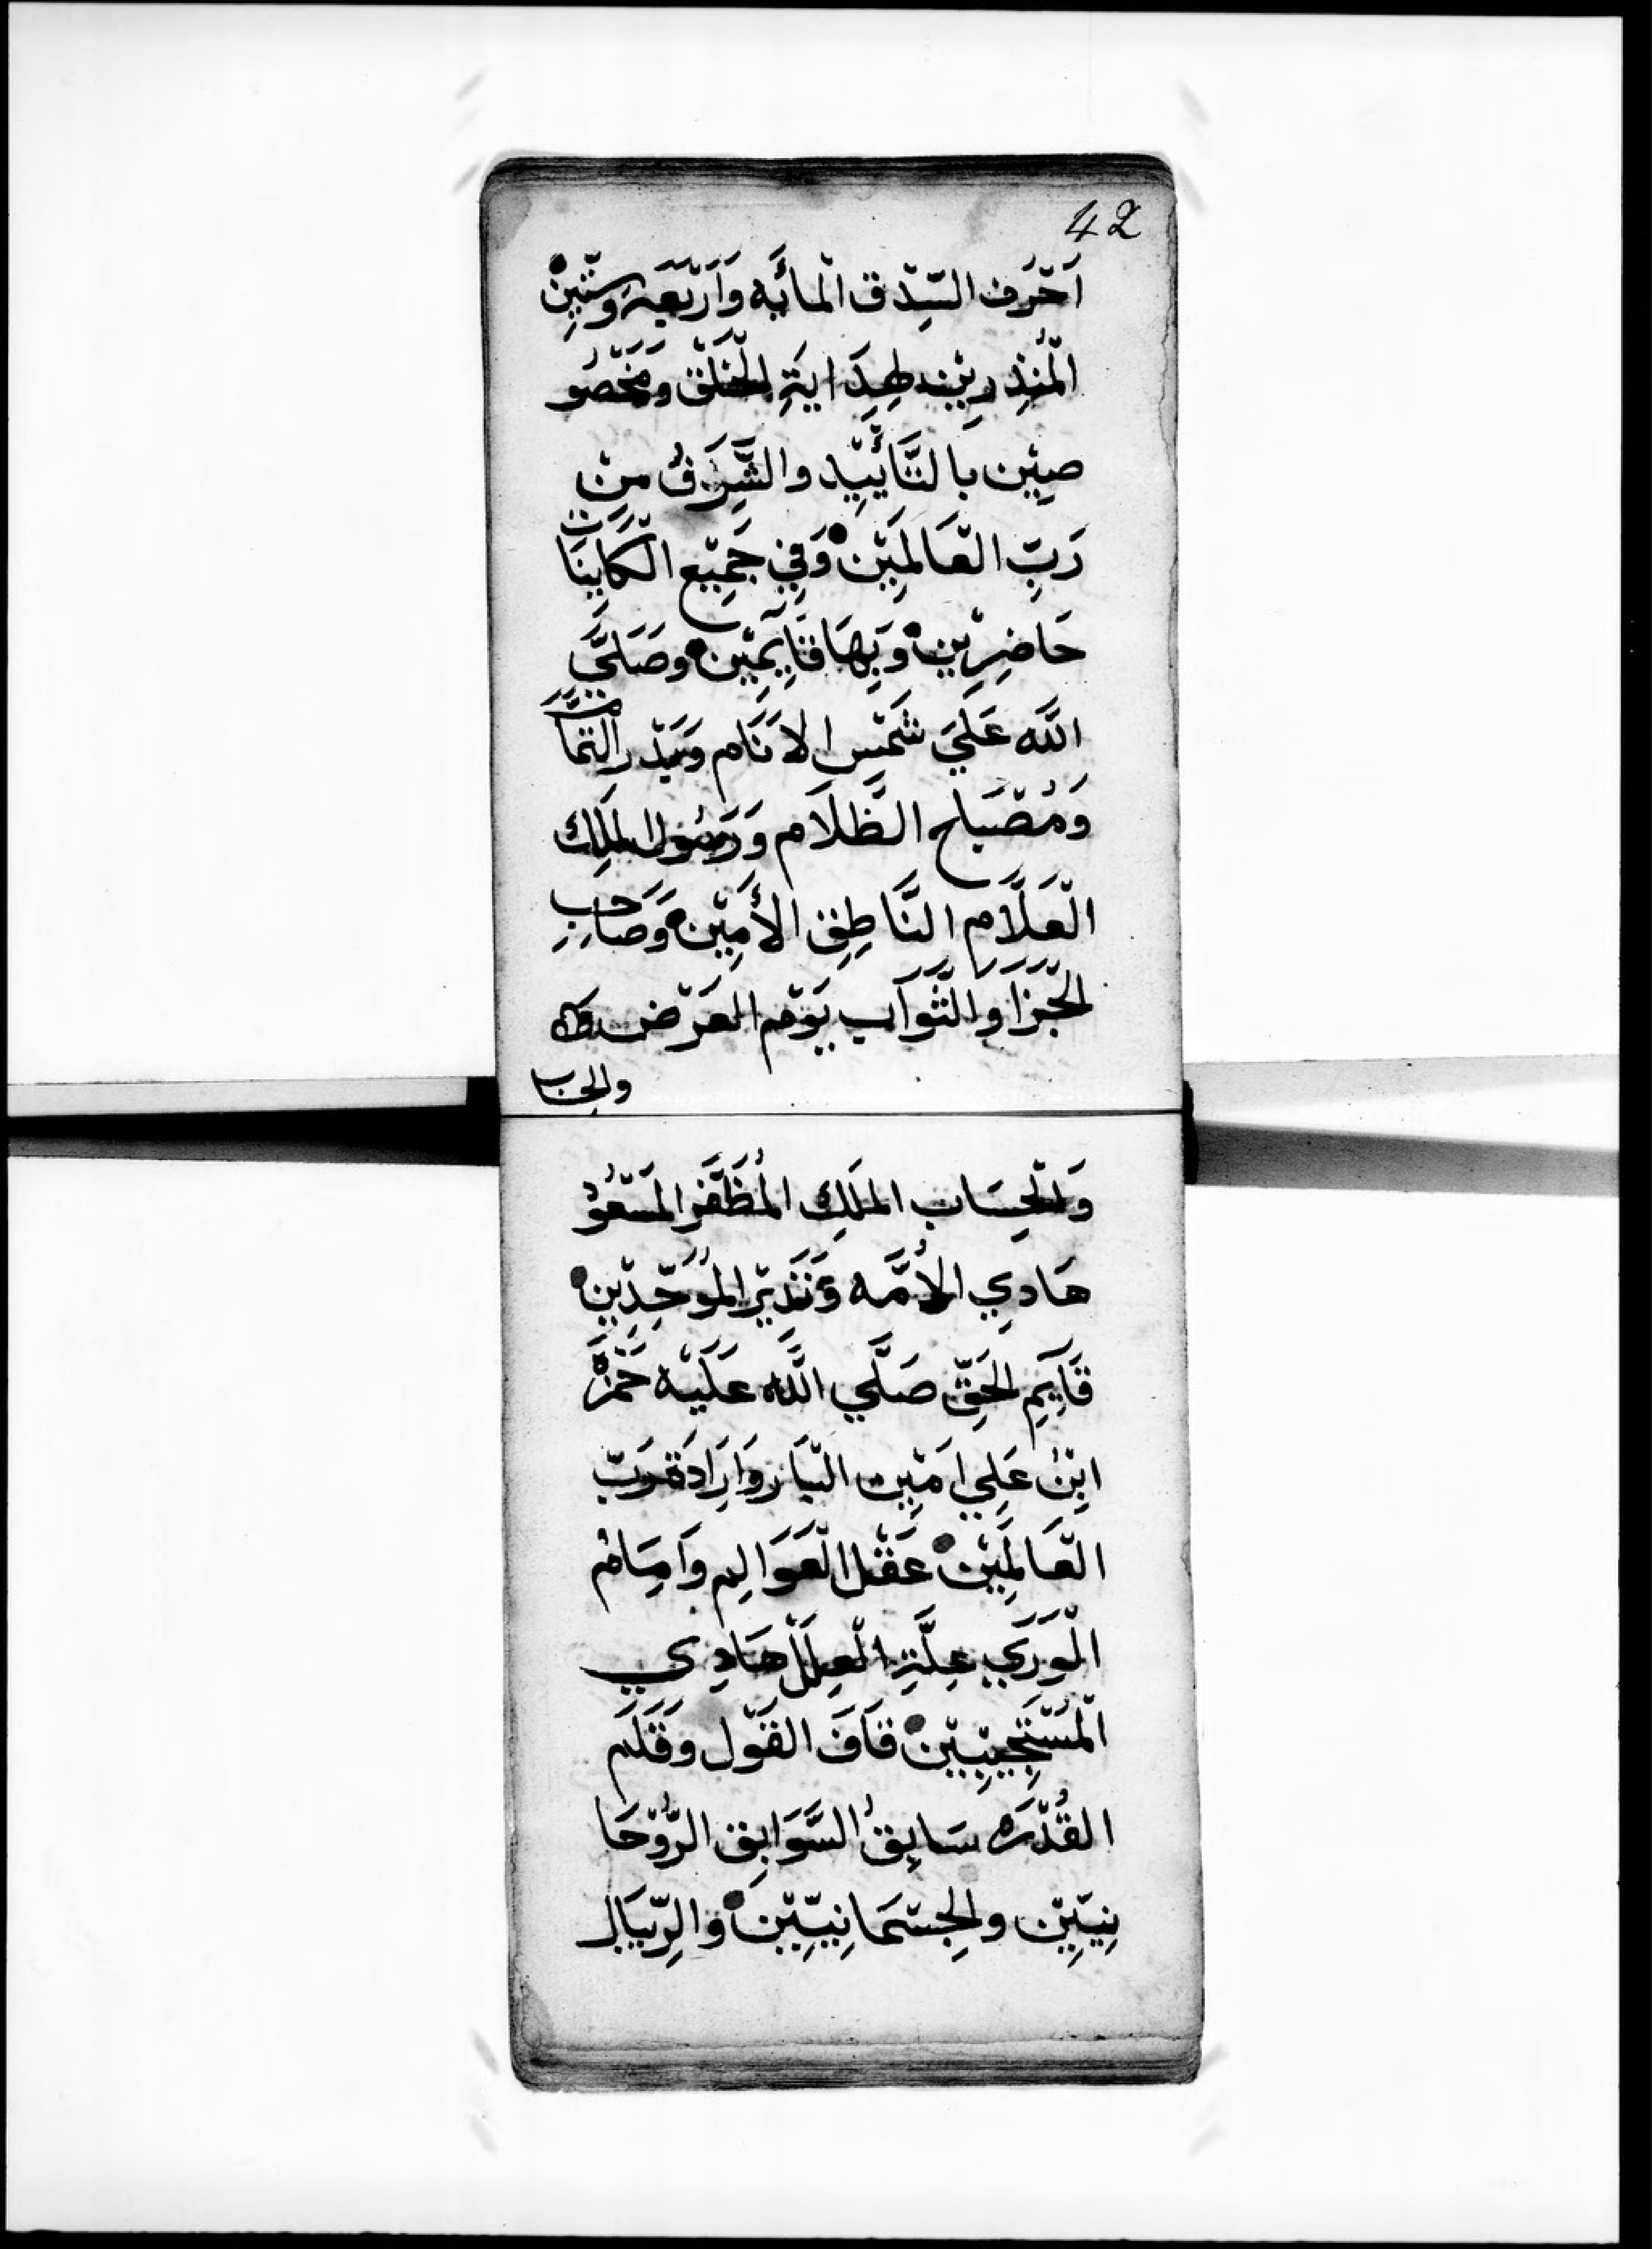 42
اَحْرَف السِّدْق الْمائَيه وَاَرْبَعَه وَسِتِّينْ
الْمُنْذِرِيْن لِهِدَايَةِ الْخَلْق وَمَخْصُو
صِيْن بَالتَّائْيِيْد والشَّرَفُ مِنْ
رَبِّ الْعَالَمِيْنْ وَفِي جَمِيْع الْكَايِنَات
حَاضِرِيْنْ وَبِهَا قَايِمِيْنْ وصَلَيَّ
اللَّه عَلَيَ شَمْس الاَنَام وَبَدْر التمَّام
وَمُصْبَاح الظَّلاَم وَرَسُول الملِك
الْعَلَّام النَّاطِق الأَمِيْن وَصَاحِب
الْجَزَا وَالثَّوَاب يَوْم العَرْض
والحساب
وَالْحِسَاب الملَِك الْمُظَفَّر الْمَسْعُوْد
هَادِي الاُمَّه وَنَذِيْر الْمُوَحِّدِيْن
قَايِمِ الْحَقّ صَلَّي اللَّه عَلَيْه حَمْزَه
ابْنُ عَلِي اَمِيْن الْبَار وَاِرَادَة رَبّ
الْعَالَمِيْن عَقْل الْعَوَالِم وَاِمَامُ
الْوَرَي عِلَّةِ الْعِلَلْ هَادِي
الْمُسْتَجِيْبِيْن قَافَ القَوْل وَقَلَم
القُدْرَه سَابِقُ السَّوَابِق الرُّوْحَا
نِيِّيْن والْجِسْمَانِيِّيْن وَالرِّيبَال